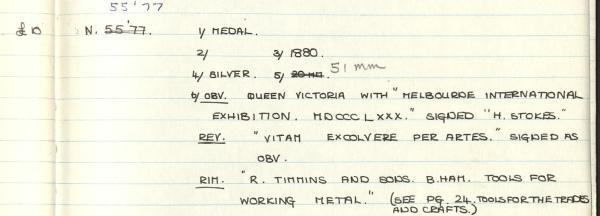 55'77
£10 N. 55'77. 1/ MEDAL.
2/ 3/ 1880.
4/ SILVER. 5/ 51 mm
6/ OBV. QUEEN VICTORIA WITH "MELBOURNE INTERNATIONAL
EXHIBITION. MDCCCLXXX." SIGNED "H. STOKES."
REV. "VITAM EXCOLVERE PER ARTES." SIGNED AS
OBV.
RIM. "R. TIMMINS AND SONS. B.HAM. TOOLS FOR
WORKING METAL." (SEE PG. 24. TOOLS FOR THE TRADES
AND CRAFTS.)